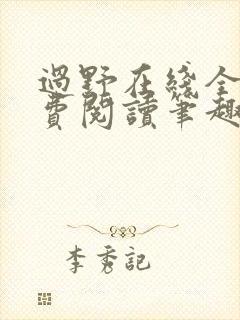 過野在綫全
費閱讀筆趣
李秀記